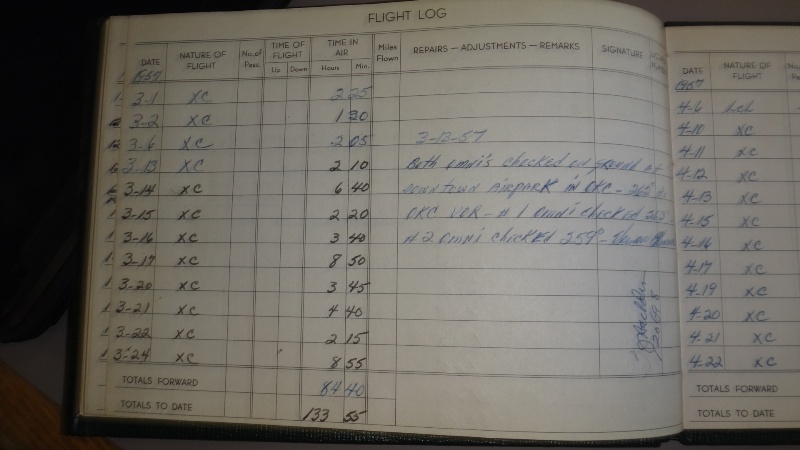 FLIGHT LOG
DATE NATURE OF FLIGHT No. of Pass. TIME OF FLIGHT Up Down TIME IN AIR Hours Min. Miles Flown REPAIRS — ADJUSTMENTS — REMARKS SIGNATURE
1957
3-1 XC 2 25
3-2 XC 1 20
3-6 XC 2 05 3-13-57
3-13 XC 2 10 Both omni's checked on ground at
3-14 XC 6 40 DOWNTOWN AIRPARK IN OKC -
3-15 XC 2 20 OKC VOR - #1 omni checked
3-16 XC 3 40 #2 omni checked 259° -
3-17 XC 8 50
3-20 XC 3 45
3-21 XC 4 40
3-22 XC 2 15
3-24 XC 8 55
TOTALS FORWARD 84 40
TOTALS TO DATE 133 55
DATE NATURE OF FLIGHT
1957
4-6
4-10 XC
4-11 XC
4-12 XC
4-13 XC
4-15 XC
4-16 XC
4-17 XC
4-19 XC
4-20 XC
4-21 XC
4-22 XC
TOTALS FORWARD
TOTALS TO DATE